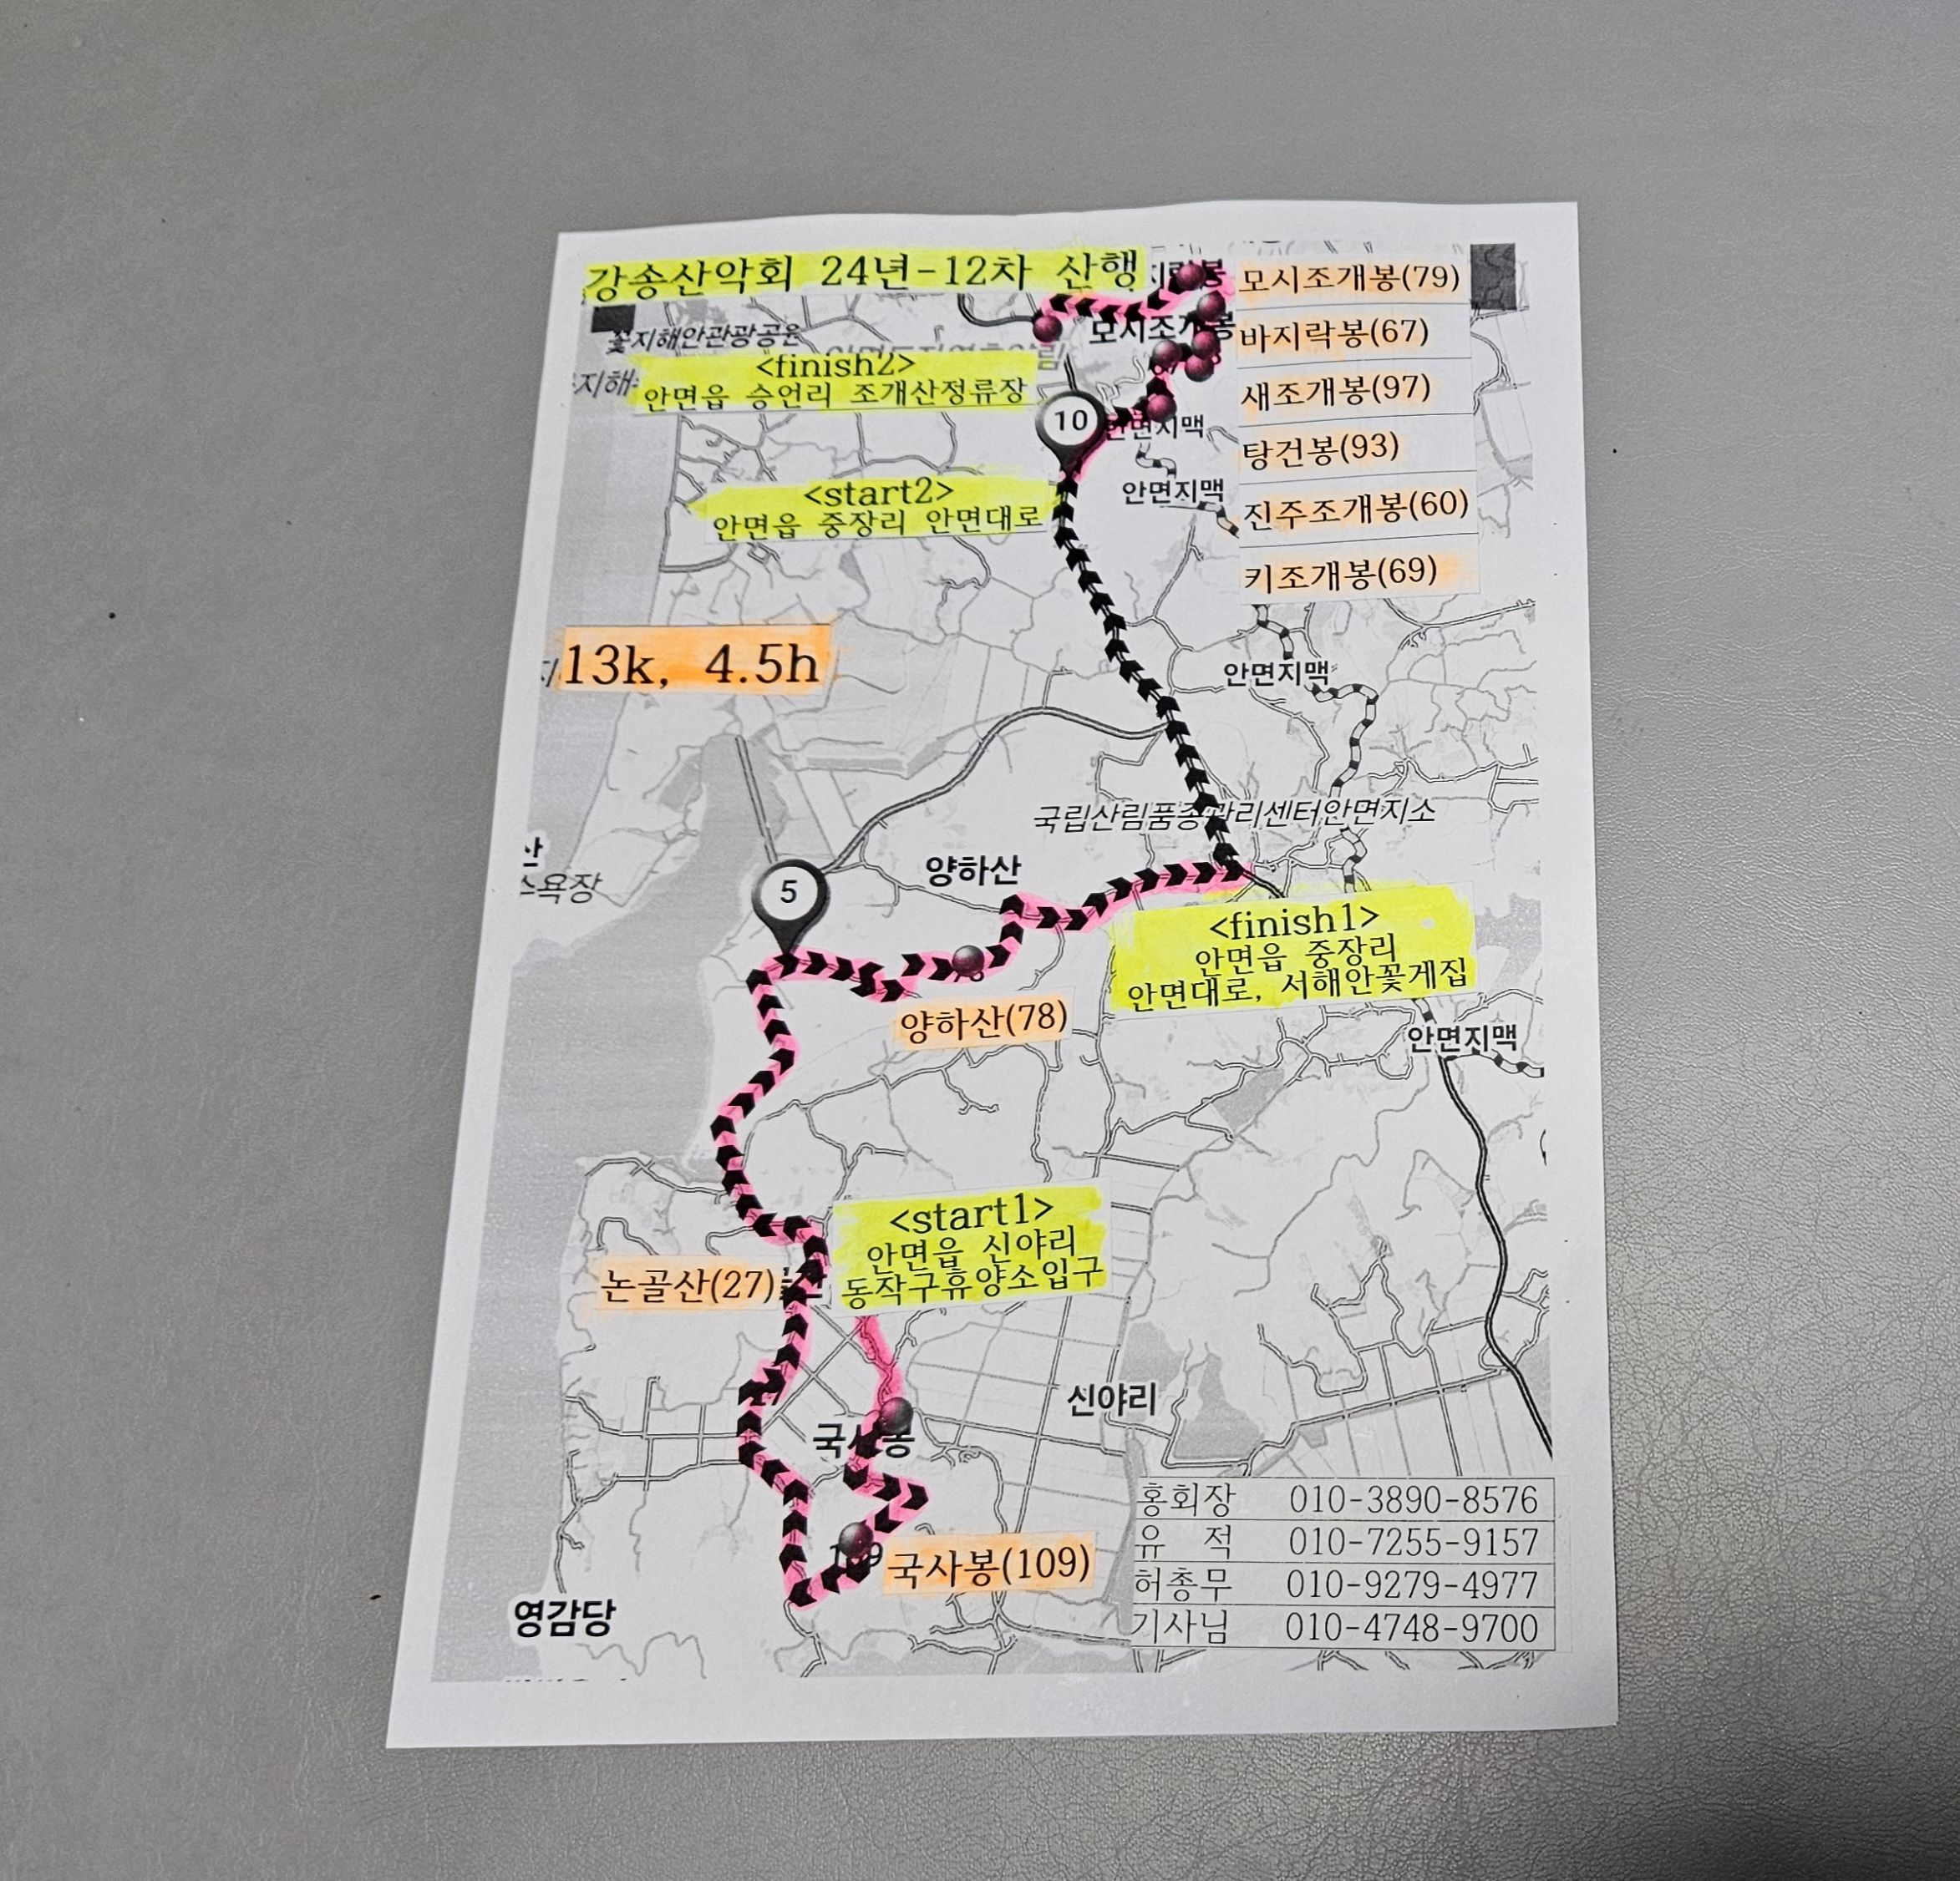 강송산악회 24년-12차 산행
모시조개봉(79)
바지락봉(67)
새조개봉(97)
탕건봉(93)
진주조개봉(60)
키조개봉(69)
꽃지해안관광공원
모시조개봉
<finish2>
안면읍 승언리 조개산정류장
10
안면지맥
<start2>
안면읍 중장리 안면대로
안면지맥
13k, 4.5h
안면지맥
국립산림품종관리센터안면지소
양하산
5
<finish1>
안면읍 중장리
안면대로, 서해안꽃게집
양하산(78)
안면지맥
<start1>
안면읍 신야리
동작구휴양소입구
논골산(27)
신야리
국사봉
국사봉(109)
영감당
홍회장 010-3890-8576
유 적 010-7255-9157
허총무 010-9279-4977
기사님 010-4748-9700